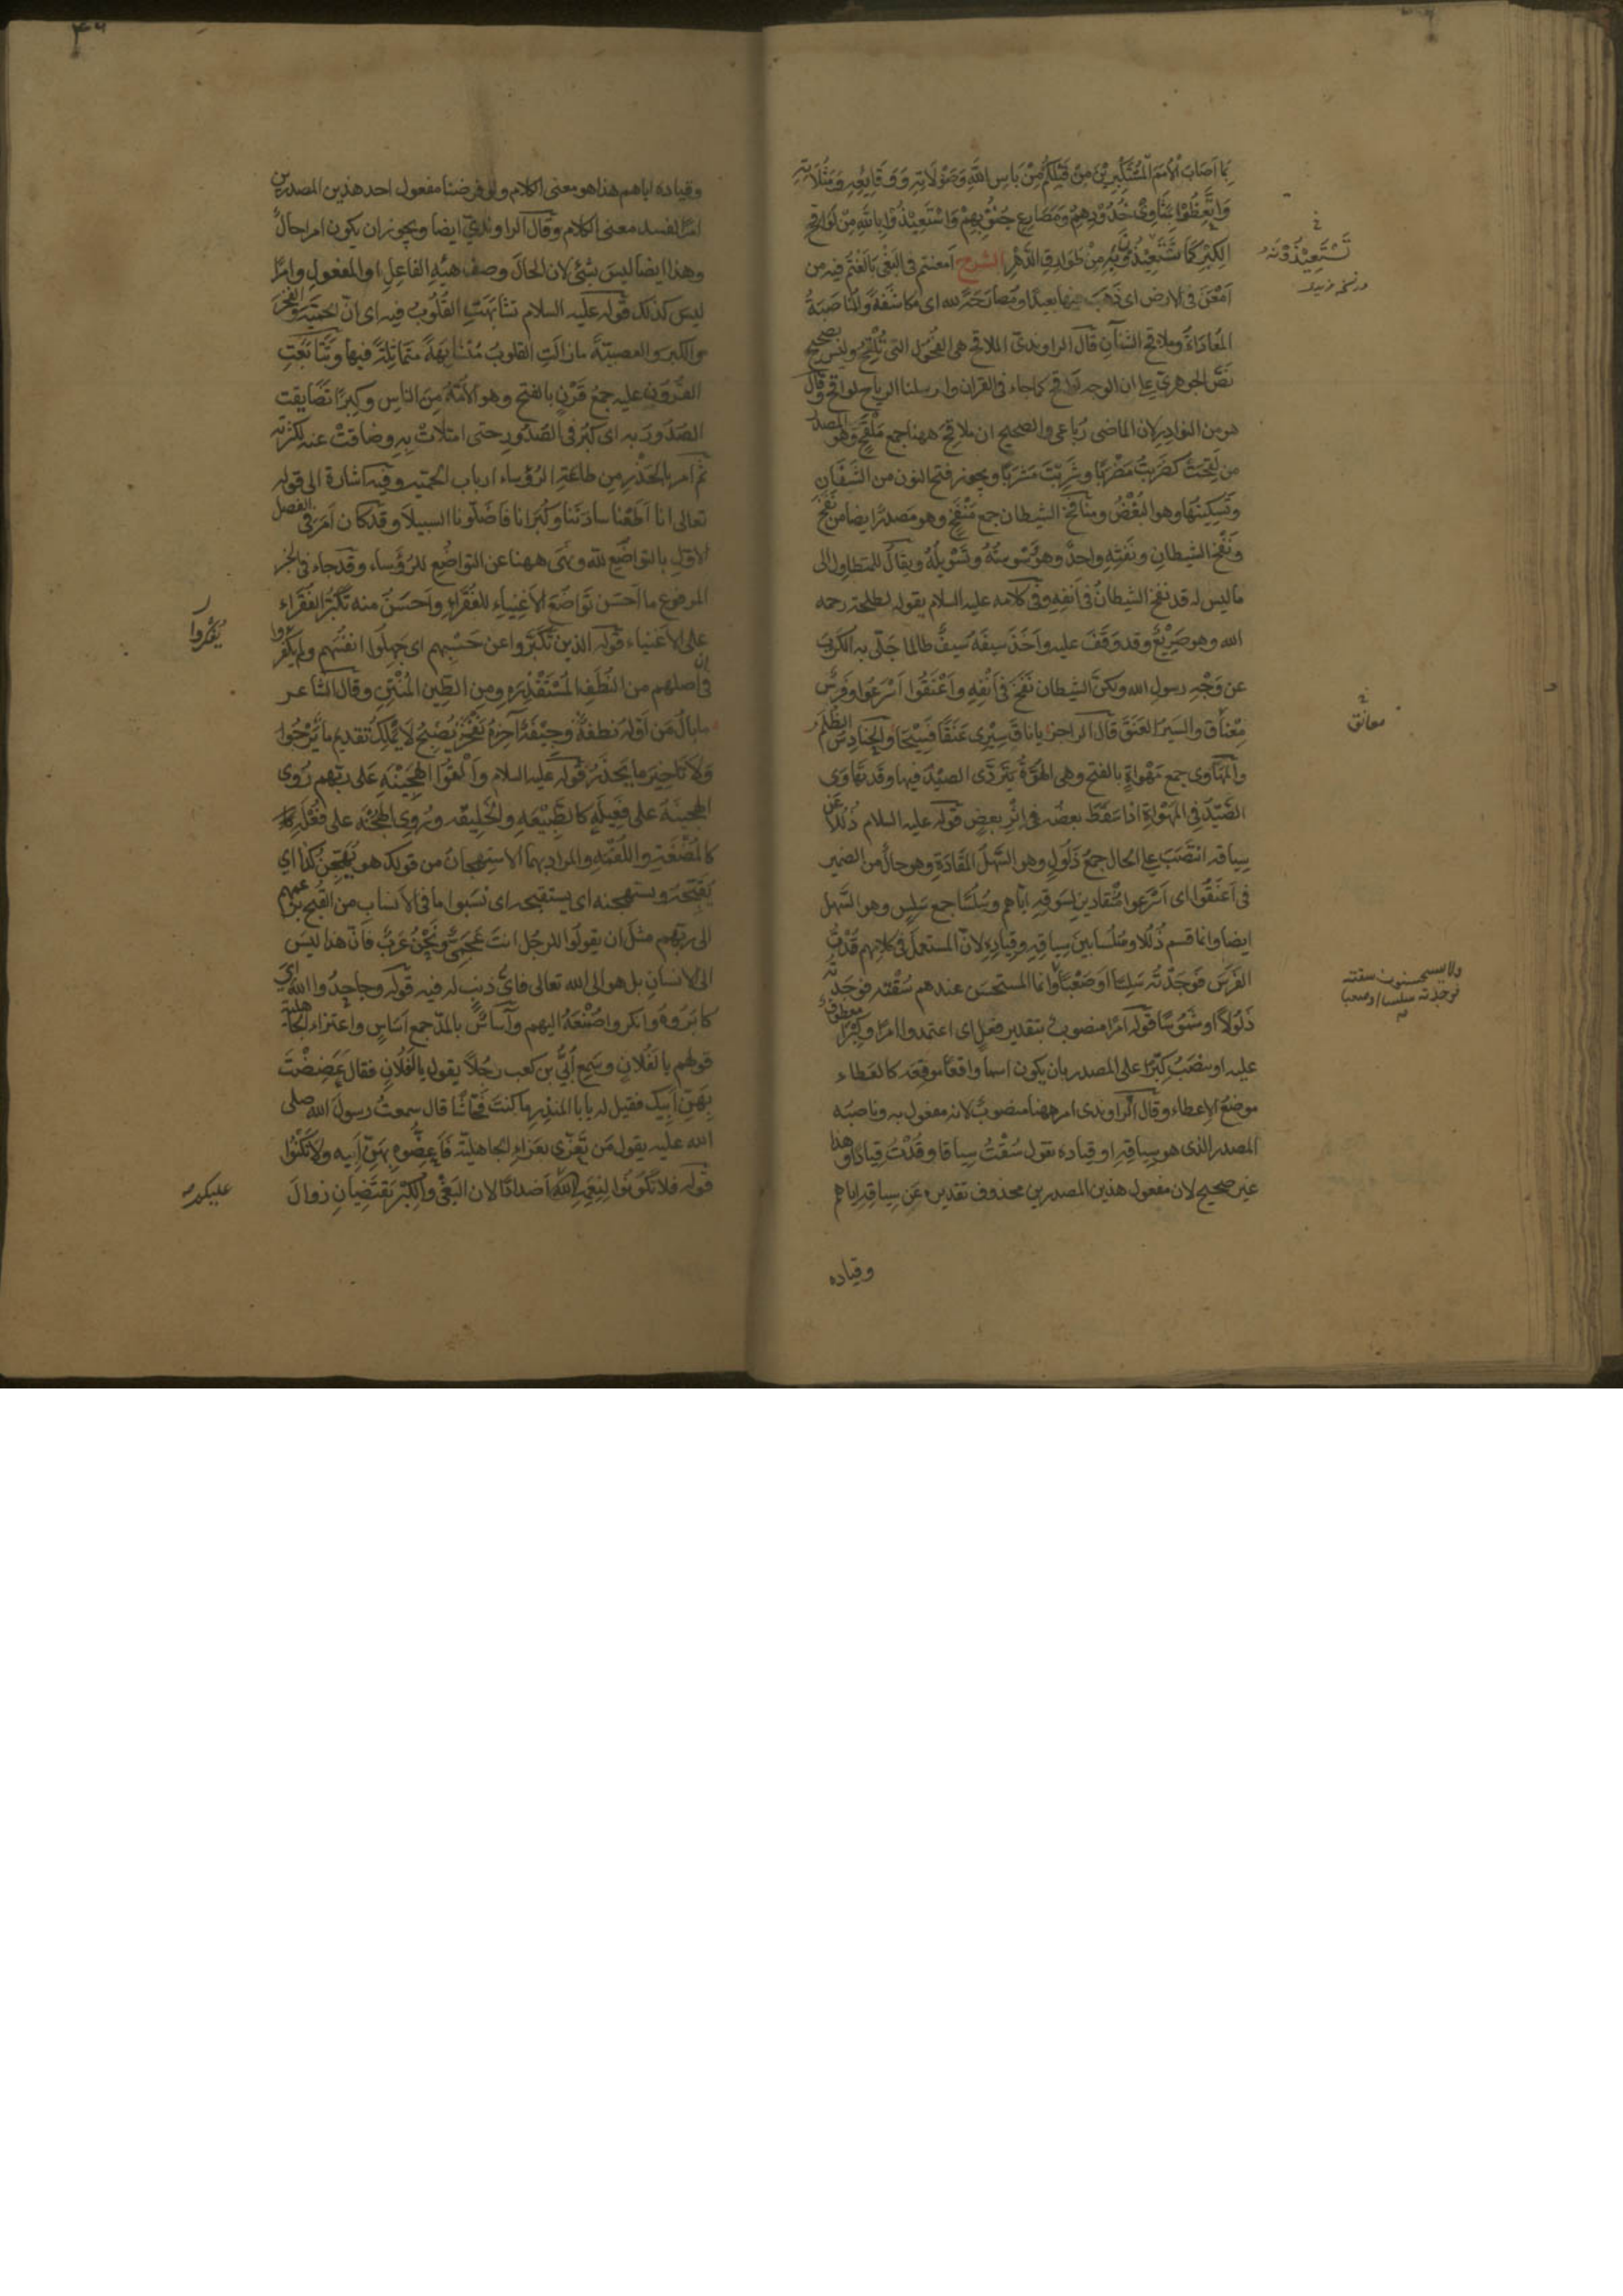 بما اصاب الامم المستكبرين من قبلكم من باس الله وصولاته ووقايعه ومثلاته
واتعظوا بمثاوى خدودهم ومصارع جنوبهم واستعيذوا بالله من لواقح
الكبر كما تستعيذون به من طوارق الدهر الشرح امعنتم في البغي بالغتم فيه من
امعن في الارض اى ذهب فيها بعيدا ومصارحة لله اى مكاشفة والمناصبة
المعاداة وملاقح الشنآن قال الراوندى الملاقح هى الفحول التى تلقح وليس بصحيح
نص الجوهرى على ان الوجه لواقح كما جاء في القران وارسلنا الرياح لواقح وقال
هو من النوادر لان الماضى رباعى والصحيح ان ملاقح ههنا جمع ملقح وهو المصدر
من لقحت كضربت مضربا وشربت مشربا ويجوز فتح النون من الشنآن
وتسكينها وهو البغض ومنافخ الشيطان جمع منفخ وهو مصدر ايضا من نفخ
ونفخ الشيطان ونفثه واحد وهو وسوسته وتسويله ويقال للمتطاول الى
ما ليس له قد نفخ الشيطان في انفه وفى كلامه عليه السلام يقوله لطلحة رحمه
الله وهو صريع وقد وقف عليه واخذ سيفه سيف طالما جلى به الكرب
عن وجه رسول الله ولكن الشيطان نفخ في انفه واعنقوا اسرعوا وفرس
معناق والسير العنق قال الراجز يا ناق سيرى عنقا فسيحا والحنادس الظلم
والمهاوى جمع مهواة بالفتح وهى الهوة يتردى الصيد فيها وقد تهاوى
الصيد في المهواة اذا سقط بعضه في اثر بعض قوله عليه السلام ذللا عن
سياقه انتصب على الحال جمع ذلول وهو السهل المقادة وهو حال من الضمير
في اعنقوا اى اسرعوا منقادين لسوقه اياهم وسلسا جمع سلس وهو السهل
ايضا وانما قسم ذللا وسلسا بين سياقه وقياده لان المستعمل في كلامهم قدت
الفرس فوجدته سلسا او صعبا وانما المستحسن عندهم سقته فوجدته
ذلولا او شموسا قوله امرا منصوب بتقدير فعل اى اعتمدوا امرا وكبرا معطوف
عليه او ينصب كبرا على المصدر بان يكون اسما واقعا موقعه كالعطاء
موضع الاعطاء وقال الراوندى امر ههنا منصوب لانه مفعول به وناصبه
المصدر الذى هو سياقه او قياده تقول سقت سياقا وقدت قيادا وهذا
غير صحيح لان مفعول هذين المصدرين محذوف تقديره عن سياقه اياهم
وقياده
تستعيذونه
معانق
ولا يستحسنون سقته
فوجدته سلسا او صعبا
وقياده اياهم هذا هو معنى الكلام ولو فرضنا مفعول احد هذين المصدرين
امرا لفسد معنى الكلام وقال الراوندى ايضا ويجوز ان يكون امرا حالا
وهذا ايضا ليس بشئ لان الحال وصف هيئة الفاعل او المفعول وامرا
ليس كذلك قوله عليه السلام تشابهت القلوب فيه اى ان الحمية والفخر
والكبر والعصبية ما زالت القلوب متشابهة متماثلة فيها وتتابعت
القرون عليه جمع قرن بالفتح وهو الامة من الناس وكبرا تضايقت
الصدور به اى كبر في الصدور حتى امتلات به وضاقت عنه لكثرته
ثم امر بالحذر من طاعة الرؤساء ارباب الحمية وفيه اشارة الى قوله
تعالى انا اطعنا سادتنا وكبرانا فاضلونا السبيلا وقد كان امر في الفصل
الاول بالتواضع لله ونهى ههنا عن التواضع للرؤساء وقد جاء في الخبر
المرفوع ما احسن تواضع الاغنياء للفقراء واحسن منه تكبر الفقراء
على الاغنياء قوله الذين تكبروا عن حسبهم اى جهلوا انفسهم ولم يفكروا
في اصلهم من النطف المستقذره ومن الطين المنتن وقال الشاعر
ما بال من اوله نطفة وجيفة آخره يفخر يصبح لا يملك تقديم ما يرجوا
ولا تاخير ما يحذر قوله عليه السلام والقوا الهجينة على ربهم روى
الهجينة على فعيلة كالطبيعه والخليقه وروى الهجنه على فعله
كالمضغة واللقمه والمراد بهما الاستهجان من قولك هو يهجن كذا اى
يقبحه ويستهجنه اى يستقبحه اى نسبوا ما في الانساب من القبح بزعمهم
الى ربهم مثل ان يقولوا للرجل انت عجمى ونحن عرب فان هذا ليس
الى الانسان بل هو الى الله تعالى فاى ذنب له فيه قوله وجاحدوا الله اى
كابروه وانكروا صنعه اليهم وآساس بالمد جمع اساس واعتزاء الجاهلية
قولهم يا لفلان وسمع ابى بن كعب رجلا يقول يا لفلان فقال عضضت
بهن ابيك فقيل له يا با المنذر ما كنت فحاشا قال سمعت رسول الله صلى
الله عليه يقول من تعزى بعزاء الجاهلية فاعضوه بهن ابيه ولا تكنوا
قوله فلا تكونوا لنعم الله اضدادا لان البغى والكبر يقتضيان زوال
يفكروا
عليكم